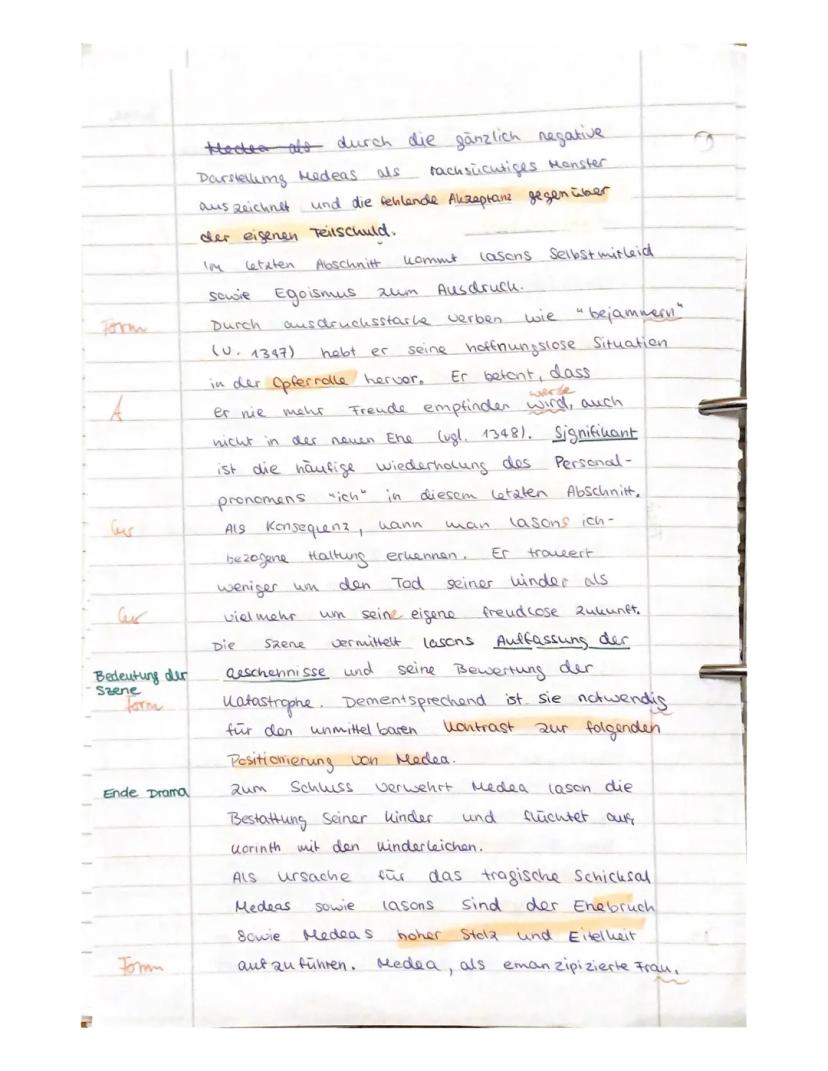 Medea als durch die gänzlich negative
Darstellung Medeas als rachsücutiges Monster
auszeichnet und die fehlende Akzeptanz gegenüber
der eigenen Teilschuld.
Im letzten Abschnitt kommt Iasons Selbstmitleid
sowie Egoismus zum Ausdruck.
Form Durch ausdrucksstarke Verben wie "bejammern"
(V. 1347) hebt er seine hoffnungslose Situation
in der Opferrolle hervor. Er betont, dass
werde
A er nie mehr Freude empfinden wird, auch
nicht in der neuen Ehe (vgl. 1348). Signifikant
ist die häufige Wiederholung des Personal-
pronomens "ich" in diesem letzten Abschnitt.
Als Konsequenz, kann man Iasons ich-
bezogene Haltung erkennen. Er trauert
weniger um den Tod seiner Kinder als
vielmehr um seine eigene freudlose Zukunft.
Die Szene vermittelt Iasons Auffassung der
Bedeutung der Geschehnisse und seine Bewertung der
Szene
Form Katastrophe. Dementsprechend ist sie notwendig
für den unmittelbaren Kontrast zur folgenden
Positionierung von Medea.
Ende Drama Zum Schluss verwehrt Medea Iason die
Bestattung Seiner Kinder und flüchtet aus
Korinth mit den Kinderleichen.
Als Ursache für das tragische Schicksal
Medeas sowie Iasons sind der Ehebruch
Sowie Medeas hoher Stolz und Eitelkeit
Form aufzuführen. Medea, als emanzipizierte Frau,